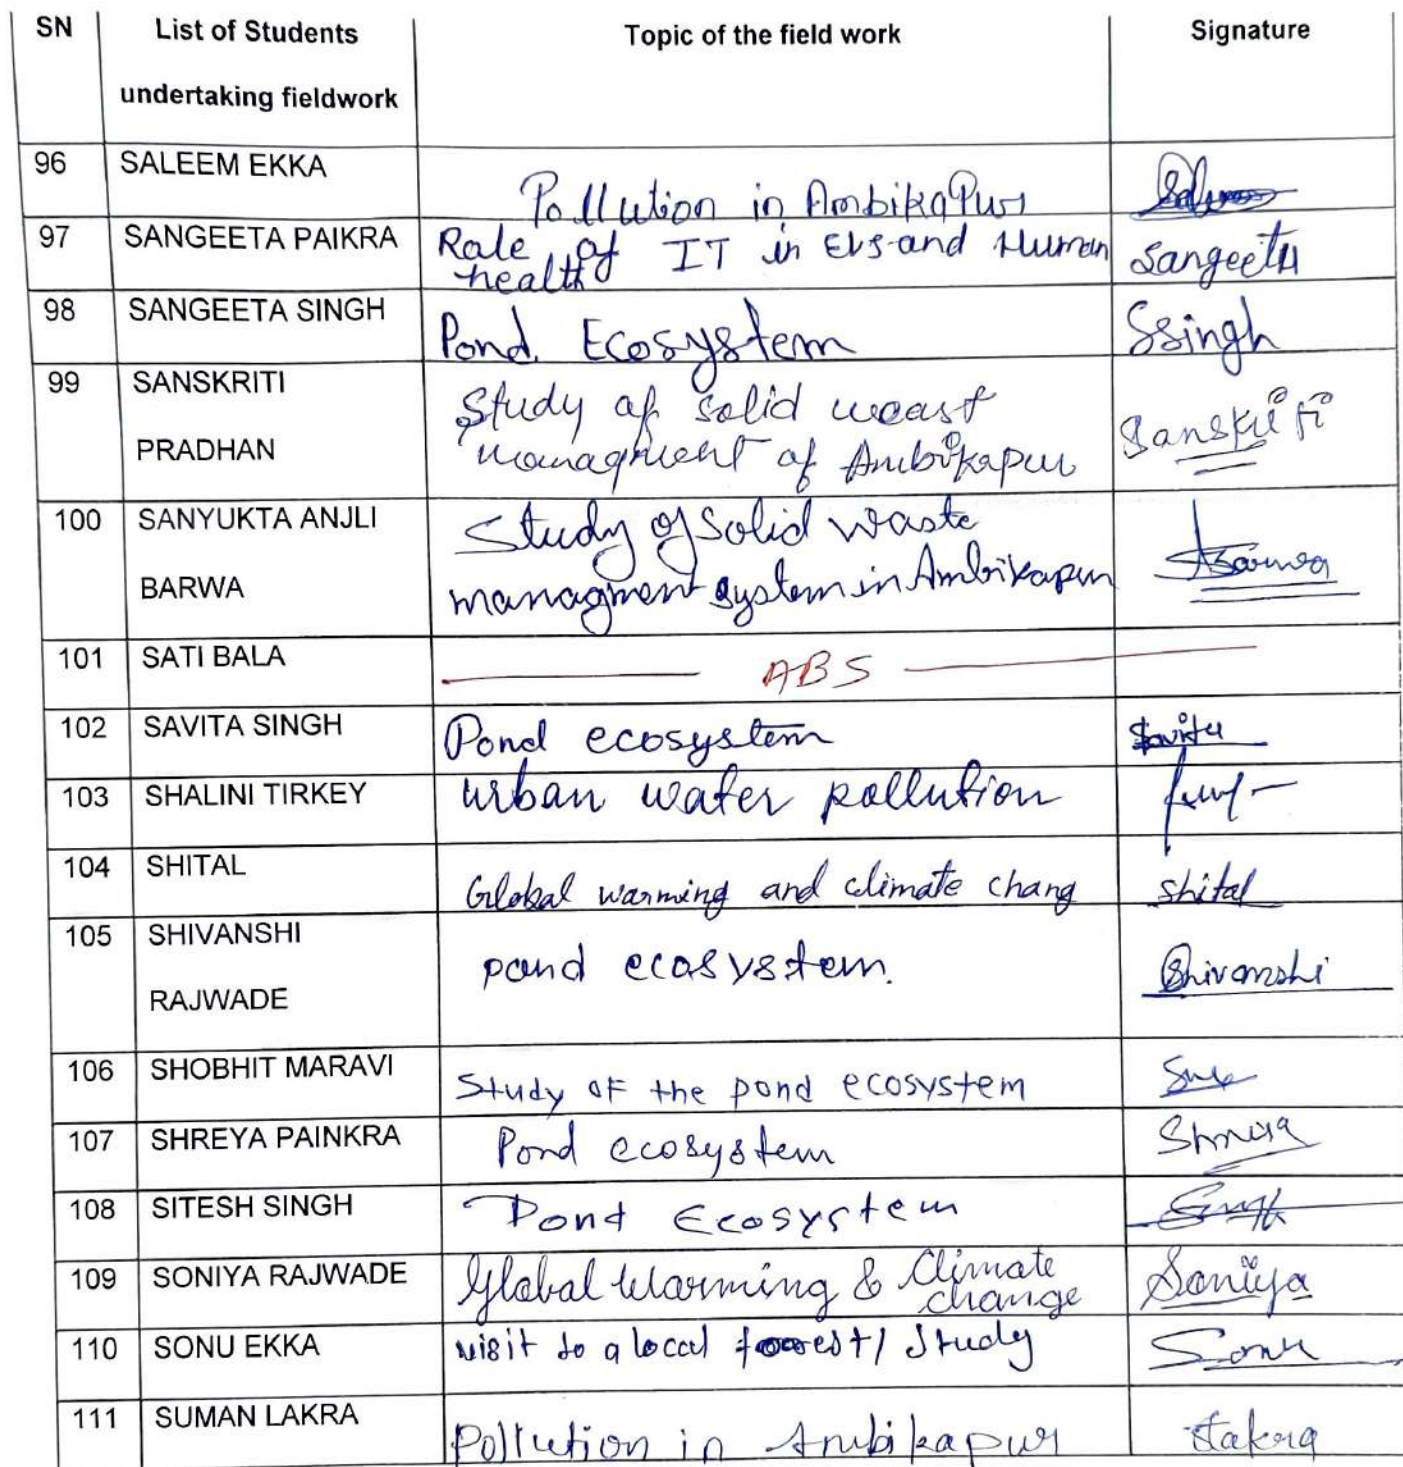 SN List of Students undertaking fieldwork Topic of the field work Signature
96 SALEEM EKKA Pollution in AmbikaPur
97 SANGEETA PAIKRA Role of IT in EVS and Human health Sangeeta
98 SANGEETA SINGH Pond Ecosystem Ssingh
99 SANSKRITI PRADHAN Study of solid weast managment of Ambikapur Sanskriti
100 SANYUKTA ANJLI BARWA Study of Solid waste managment system in Ambikapur
101 SATI BALA ABS
102 SAVITA SINGH Pond ecosystem Savita
103 SHALINI TIRKEY urban water pollution
104 SHITAL Global warming and climate chang shital
105 SHIVANSHI RAJWADE pond ecosystem. Shivanshi
106 SHOBHIT MARAVI Study OF the pond ecosystem
107 SHREYA PAINKRA Pond ecosystem Shreya
108 SITESH SINGH Pond Ecosystem
109 SONIYA RAJWADE Global Warming & Climate change Soniya
110 SONU EKKA visit to a local forest/ study Sonu
111 SUMAN LAKRA Pollution in Ambikapur Slakra